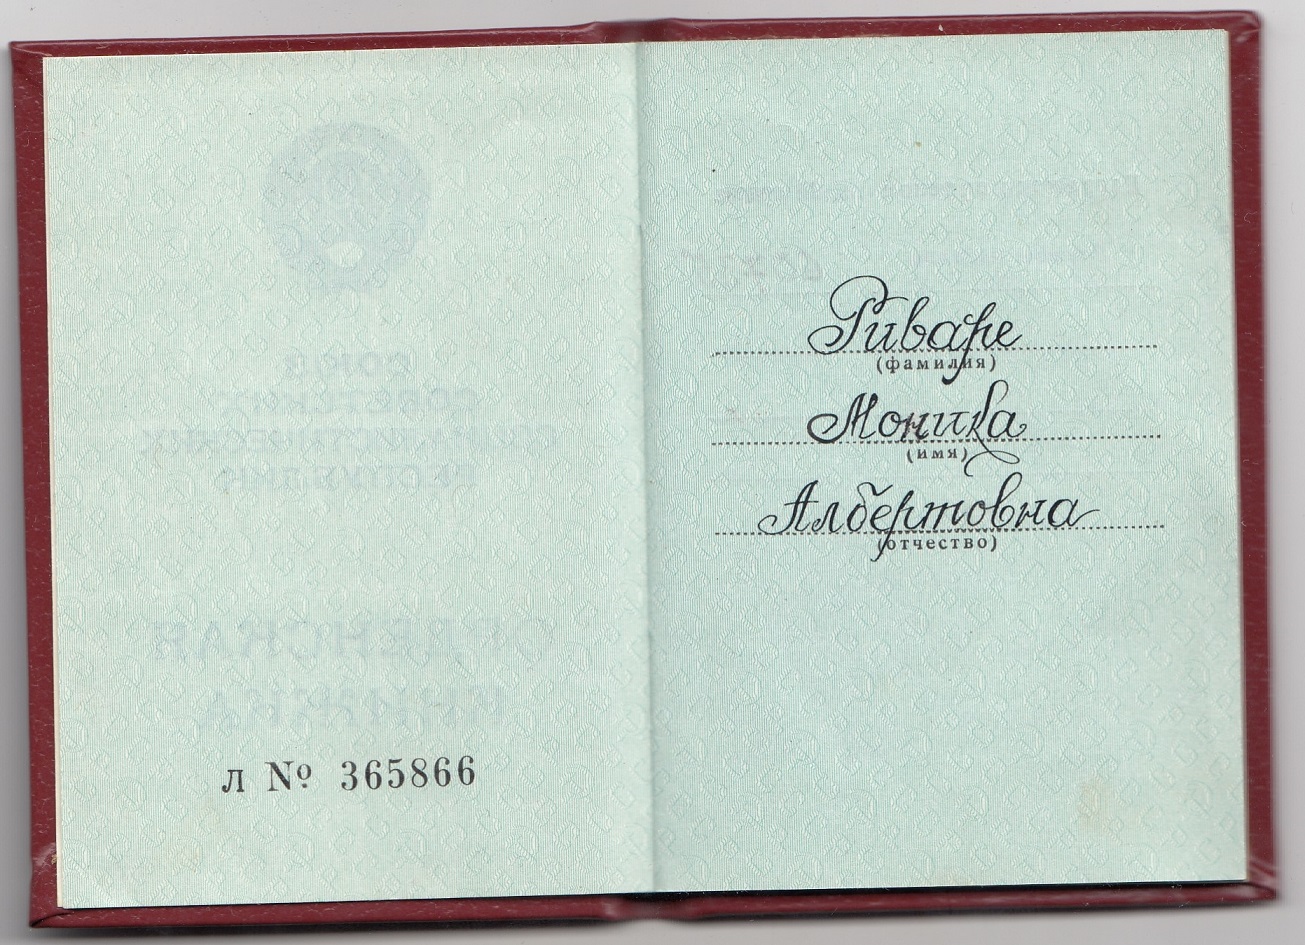 л № 365866
Риваре
(фамилия)
Моника
(имя)
Албертовна
(отчество)